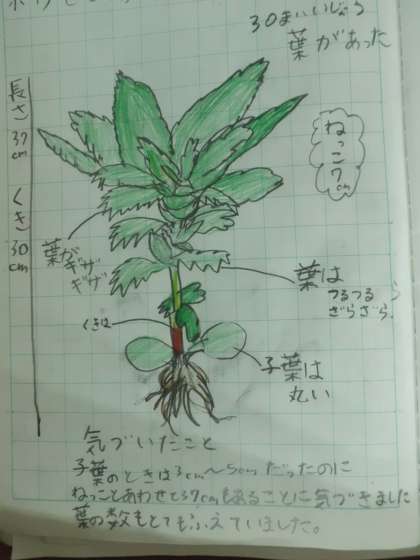 30まいいじょう
葉があった
長さ37cm くき30cm
ねっこ7cm
葉が
ギザ
ギザ
葉は
つるつる
ざらざら
くきは
子葉は
丸い
気づいたこと
子葉のときは3cm～5cmだったのに
ねっことあわせて37cmもあることに気づきました
葉の数もとてもふえていました。